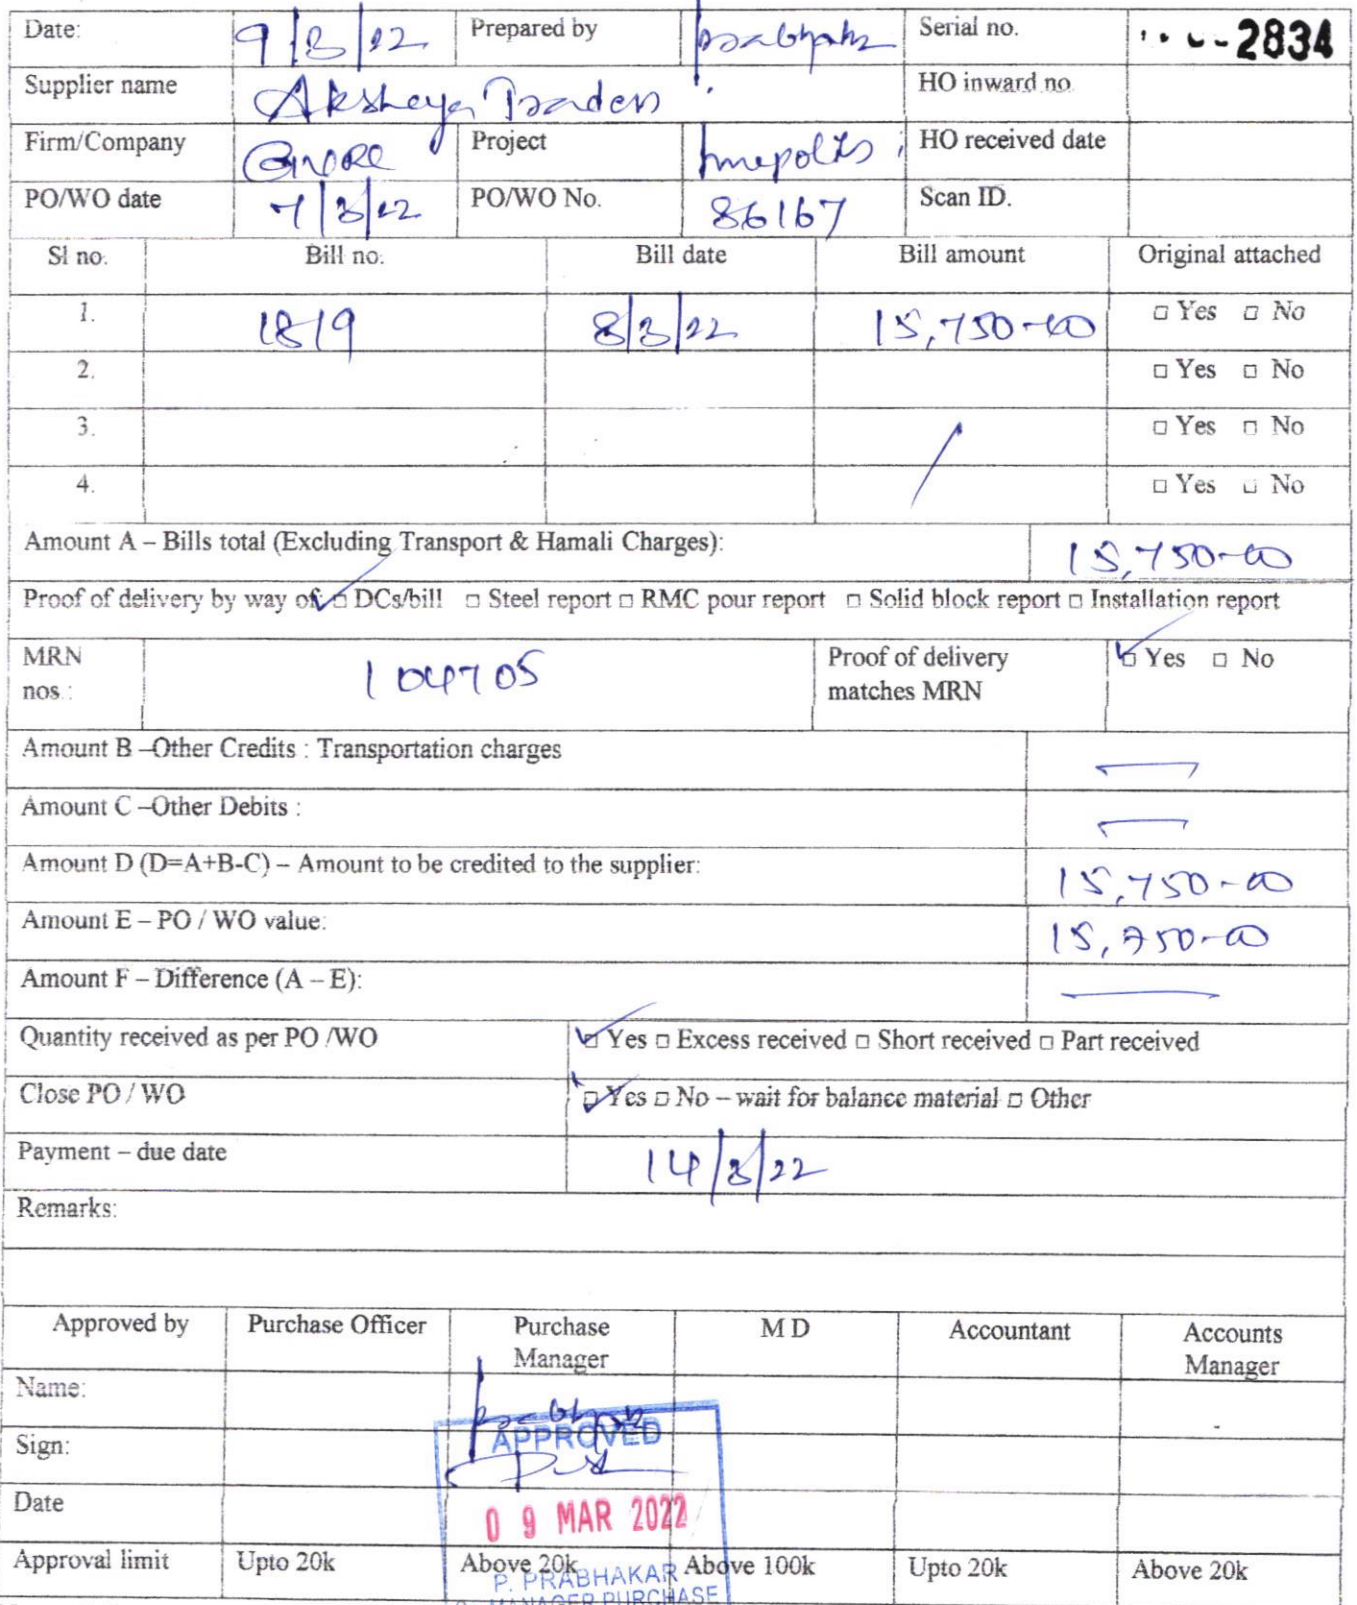 Date: 9/3/22 Prepared by Prabhakar Serial no. 2834
Supplier name Akshaya Traders HO inward no.
Firm/Company Project Innopolis HO received date
PO/WO date 7/3/22 PO/WO No. 86167 Scan ID.
Sl no. Bill no. Bill date Bill amount Original attached
1. 1819 8/3/22 15,750-00 □ Yes □ No
2. □ Yes □ No
3. □ Yes □ No
4. □ Yes □ No
Amount A – Bills total (Excluding Transport & Hamali Charges): 15,750-00
Proof of delivery by way of: □ DCs/bill □ Steel report □ RMC pour report □ Solid block report □ Installation report
MRN 104705 Proof of delivery □ Yes □ No
nos.: matches MRN
Amount B –Other Credits : Transportation charges —
Amount C –Other Debits : —
Amount D (D=A+B-C) – Amount to be credited to the supplier: 15,750-00
Amount E – PO / WO value: 15,750-00
Amount F – Difference (A – E): —
Quantity received as per PO /WO □ Yes □ Excess received □ Short received □ Part received
Close PO / WO □ Yes □ No – wait for balance material □ Other
Payment – due date 14/3/22
Remarks:
Approved by Purchase Officer Purchase M D Accountant Accounts
Manager Manager
Name: Prabhakar
Sign: APPROVED
Date 09 MAR 2022
Approval limit Upto 20k Above 20k Above 100k Upto 20k Above 20k
P. PRABHAKAR
MANAGER PURCHASE